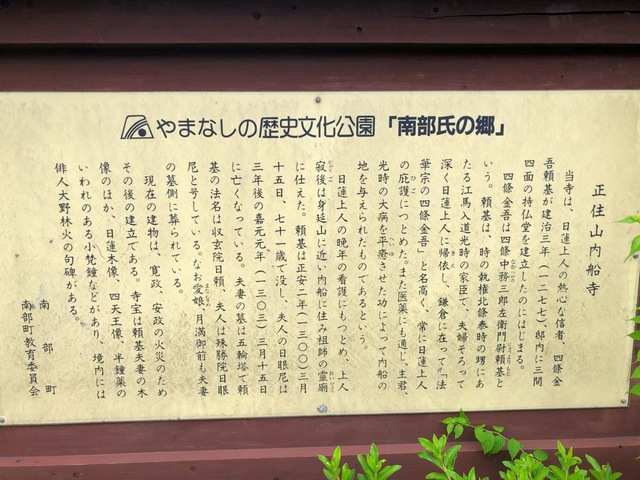 やまなしの歴史文化公園「南部氏の郷」
正住山内船寺
当寺は、日蓮上人の熱心な信者、四條金
吾頼基が建治三年(一二七七)邸内に三間
四面の持仏堂を建立したのにはじまる。
四條金吾は四條中務三郎左衛門尉頼基と
いう。頼基は、時の執権北條泰時の甥にあ
たる江馬入道光時の家臣で、夫婦そろって
深く日蓮上人に帰依し、鎌倉に在って「法
華宗の四條金吾」と名高く、常に日蓮上人
の庇護につとめた。また医薬にも通じ、主君、
光時の大病を平癒させた功によって内船の
地を与えられたものであるという。
日蓮上人の晩年の看護にもつとめ、上人
寂後は身延山に近い内船に住み祖師の霊廟
に仕えた。頼基は正安二年(一三〇〇)三月
十五日、七十一歳で没し、夫人の日眼尼は
三年後の喜元元年(一三〇三)三月十五日
に亡くなっている。夫妻の墓は五輪塔で頼
基の法名は収玄院日頼、夫人は殊勝院日眼
尼と号している。なお愛娘、月満御前も夫妻
の墓側に葬られている。
現在の建物は、寛政、安政の火災のため
その後の建立である。寺宝は頼基夫妻の木
像のほか、日蓮木像、四天王像、半鐘薬の
いわれのある小梵鐘などがあり、境内には
俳人大野林火の句碑がある。
南部町
南部町教育委員会